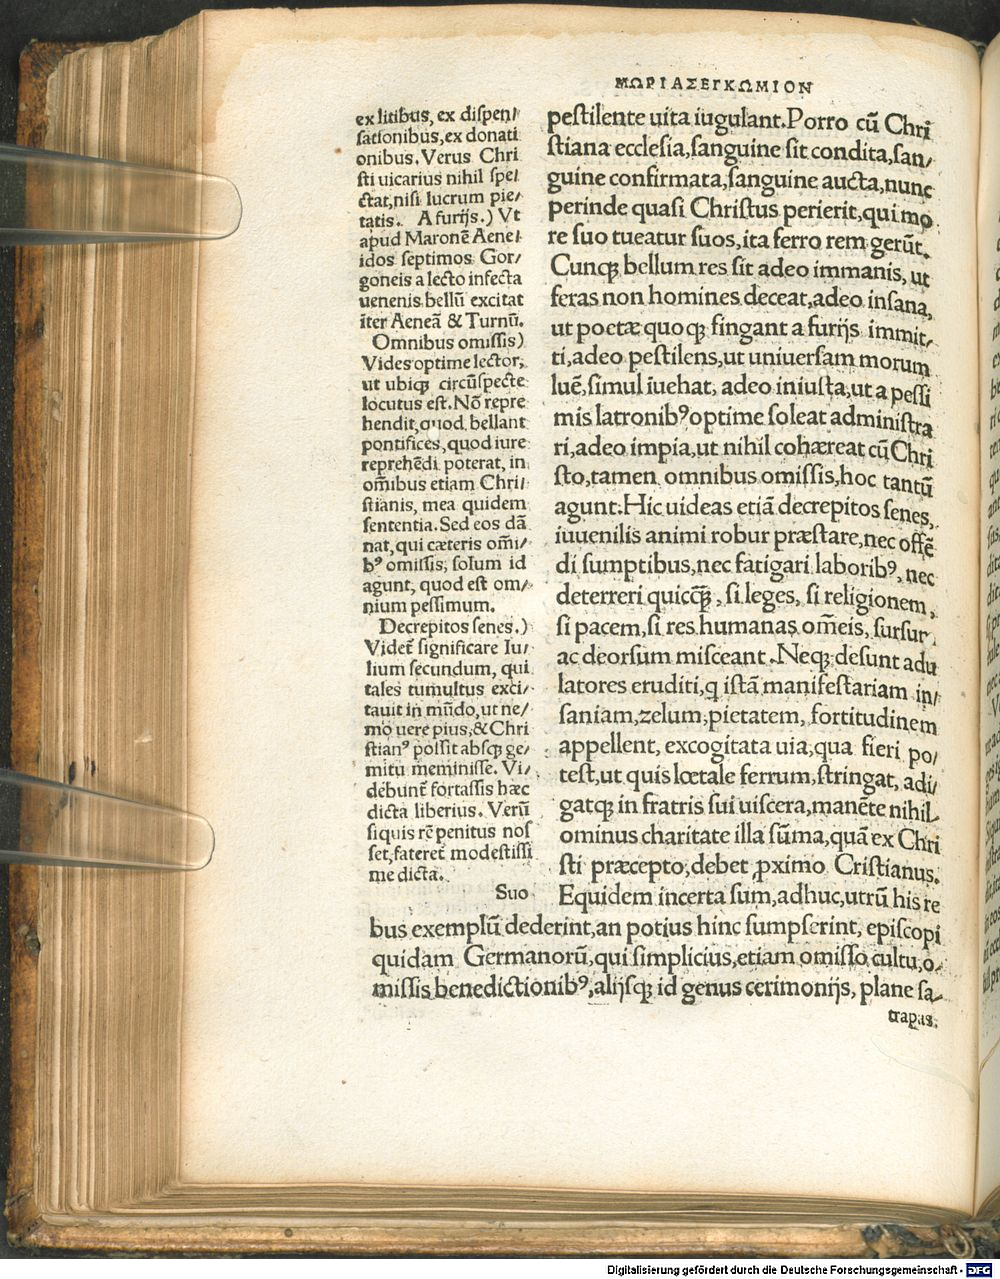 ΜΩΡΙΑΣΕΓΚΩΜΙΟΝ
ex litibus, ex dispen/
sationibus, ex donati
onibus. Verus Chri
sti uicarius nihil spe/
ctat, nisi lucrum pie/
tatis. A furijs.) Vt
apud Maronē Aene/
idos septimos Gor/
goneis a lecto infecta
uenenis bellū excitat
īter Aeneā & Turnū.
Omnibus omissis)
Vides optime lector,
ut ubiqꝫ circūspecte
locutus est. Nō repre
hendit, quod bellant
pontifices, quod iure
reprehēdi poterat, in
om̄ibus etiam Chri/
stianis, mea quidem
sententia. Sed eos dā
nat, qui cæteris om̄i/
bꝰ omissis, solum id
agunt, quod est om/
nium pessimum.
Decrepitos senes.)
Videt᷑ significare Iu/
lium secundum, qui
tales tumultus exci/
tauit in mūdo, ut ne/
mo uere pius, & Chri
stianꝰ possit absqꝫ ge/
mitu meminisse. Vi/
debunt᷑ fortassis hæc
dicta liberius. Verū
siquis rē penitus nos
set, fateret᷑ modestissi
me dicta.
Suo
pestilente uita iugulant. Porro cū Chri
stiana ecclesia, sanguine sit condita, san/
guine confirmata, sanguine aucta, nunc
perinde quasi Christus perierit, qui mo
re suo tueatur suos, ita ferro rem gerūt.
Cunqꝫ bellum res sit adeo immanis, ut
feras non homines deceat, adeo insana,
ut poetæ quoqꝫ fingant a furijs immit/
ti, adeo pestilens, ut uniuersam morum
luē, simul iuehat, adeo iniusta, ut a pessi
mis latronibꝰ optime soleat administra
ri, adeo impia, ut nihil cohæreat cū Chri
sto, tamen omnibus omissis, hoc tantū
agunt. Hic uideas etiā decrepitos senes,
iuuenilis animi robur præstare, nec offē
di sumptibus, nec fatigari laboribꝰ, nec
deterreri quicq̄ꝫ, si leges, si religionem,
si pacem, si res humanas om̄eis, sursur
ac deorsum misceant. Neqꝫ desunt adu
latores eruditi, q istā manifestariam in/
saniam, zelum, pietatem, fortitudinem
appellent, excogitata uia, qua fieri po/
test, ut quis lœtale ferrum, stringat, adi/
gatqꝫ in fratris sui uiscera, manēte nihil
ominus charitate illa sūma, quā ex Chri
sti præcepto, debet ꝓximo Cristianus.
Equidem incerta sum, adhuc, utrū his re
bus exemplū dederint, an potius hinc sumpserint, episcopi
quidam Germanorū, qui simplicius, etiam omisso cultu, o/
missis benedictionibꝰ, alijsqꝫ id genus cerimonijs, plane sa/
trapas.
Digitalisierung gefördert durch die Deutsche Forschungsgemeinschaft - DFG